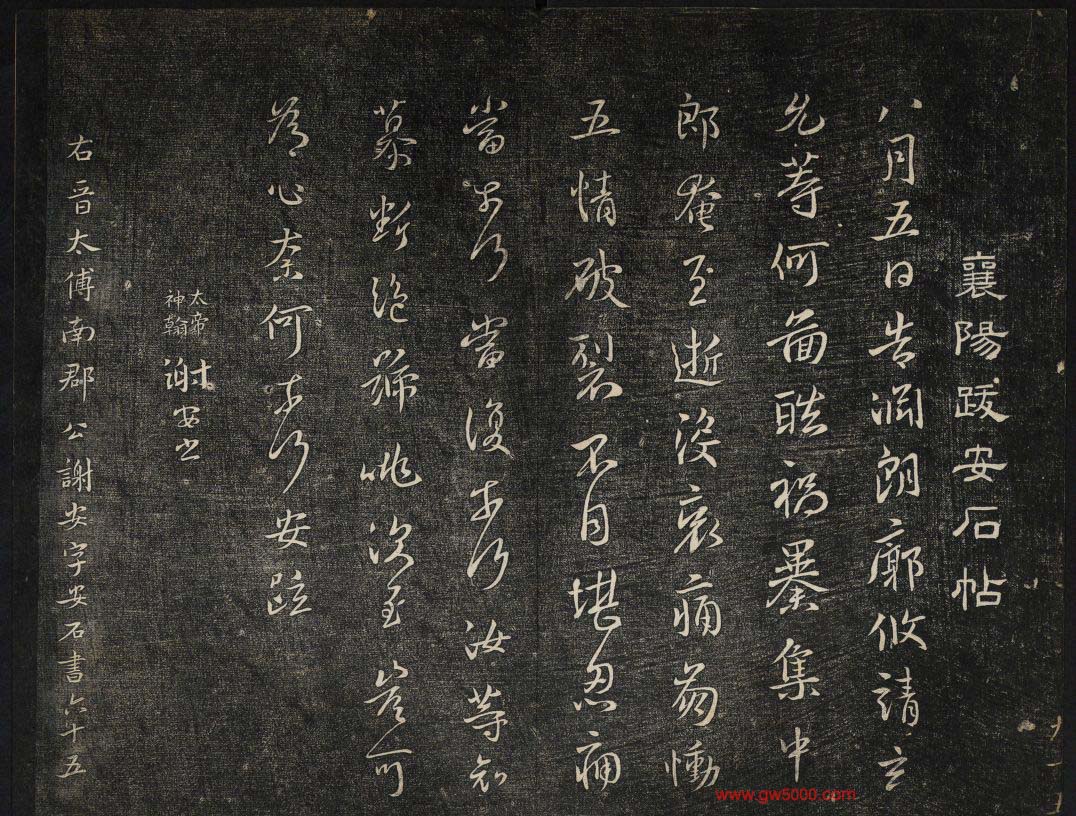 襄陽跋安石帖
八月五日告淵朗廓攸靖玄
允等何圖酷禍暴集中
郎奄至逝沒哀痛崩慟
五情破裂不自堪忍痛
當奈何當復奈何汝等
慕斷絕號咷深至豈可
為心奈何奈何安疏
太帝
神翰
謝安書
右晉太傅南郡公謝安字安石書六十五
www.gw5000.com